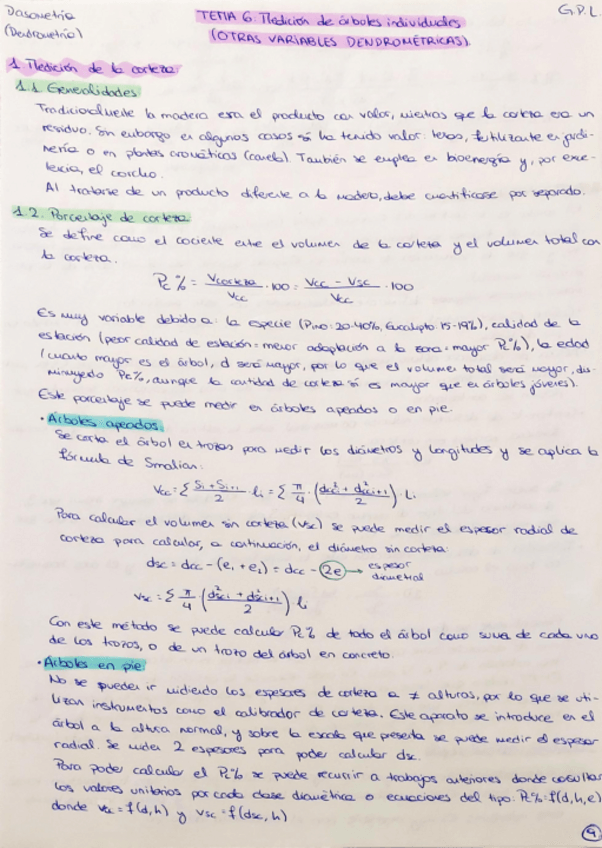 Dasometría
(Dendrometría)
TEMA 6. Medición de árboles individuales
(OTRAS VARIABLES DENDROMÉTRICAS).
G.P.L.
1. Medición de la corteza
1.1. Generalidades
Tradicionalmente la madera era el producto con valor, mientras que la corteza era un
residuo. Sin embargo en algunos casos sí ha tenido valor: teso, fertilizante en jardi-
nería o en plantas aromáticas (canela). También se emplea en bioenergía y, por exce-
lencia, el corcho.
Al tratarse de un producto diferente a la madera, debe cuantificarse por separado.
1.2. Porcentaje de corteza
Se define como el cociente entre el volumen de la corteza y el volumen total con
la corteza.
Pc% = Vcorteza / Vcc · 100 = Vcc - Vsc / Vcc · 100
Es muy variable debido a: la especie (Pino: 20-40%, Eucalipto: 15-19%), calidad de la
estación (peor calidad de estación = menor adaptación a la zona = mayor Pc%), la edad
(cuanto mayor es el árbol, d será mayor, por lo que el volumen total será mayor, dis-
minuyendo Pc%, aunque la cantidad de corteza sí es mayor que en árboles jóvenes).
Este porcentaje se puede medir en árboles apeados o en pie.
• Árboles apeados
Se corta el árbol en trozas para medir los diámetros y longitudes y se aplica la
fórmula de Smalian:
Vcc = Σ Si + Si+1 / 2 · li = Σ π/4 · (dcc²i + dcc²i+1 / 2) · li
Para calcular el volumen sin corteza (Vsc) se puede medir el espesor radial de
corteza para calcular, a continuación, el diámetro sin corteza:
dsc = dcc - (e1 + e2) = dcc - 2e → espesor
diametral
Vsc = Σ π/4 · (dsc²i + dsc²i+1 / 2) li
Con este método se puede calcular Pc% de todo el árbol como suma de cada uno
de los trozos, o de un trozo del árbol en concreto.
• Árboles en pie
No se pueden ir midiendo los espesores de corteza a ≠ alturas, por lo que se uti-
lizan instrumentos como el calibrador de corteza. Este aparato se introduce en el
árbol a la altura normal, y sobre la escala que presenta se puede medir el espesor
radial. Se miden 2 espesores para poder calcular dsc.
Para poder calcular el Pc% se puede recurrir a trabajos anteriores donde consultar
los valores unitarios por cada clase diamétrica o ecuaciones del tipo: Pc% = f(d,h,e)
donde vcc = f(d,h) y vsc = f(dsc,h)
9